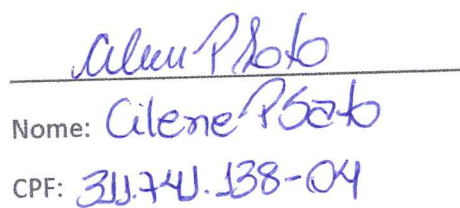 Cilene P Sato
Nome: Cilene P Sato
CPF: 311.741.138-04